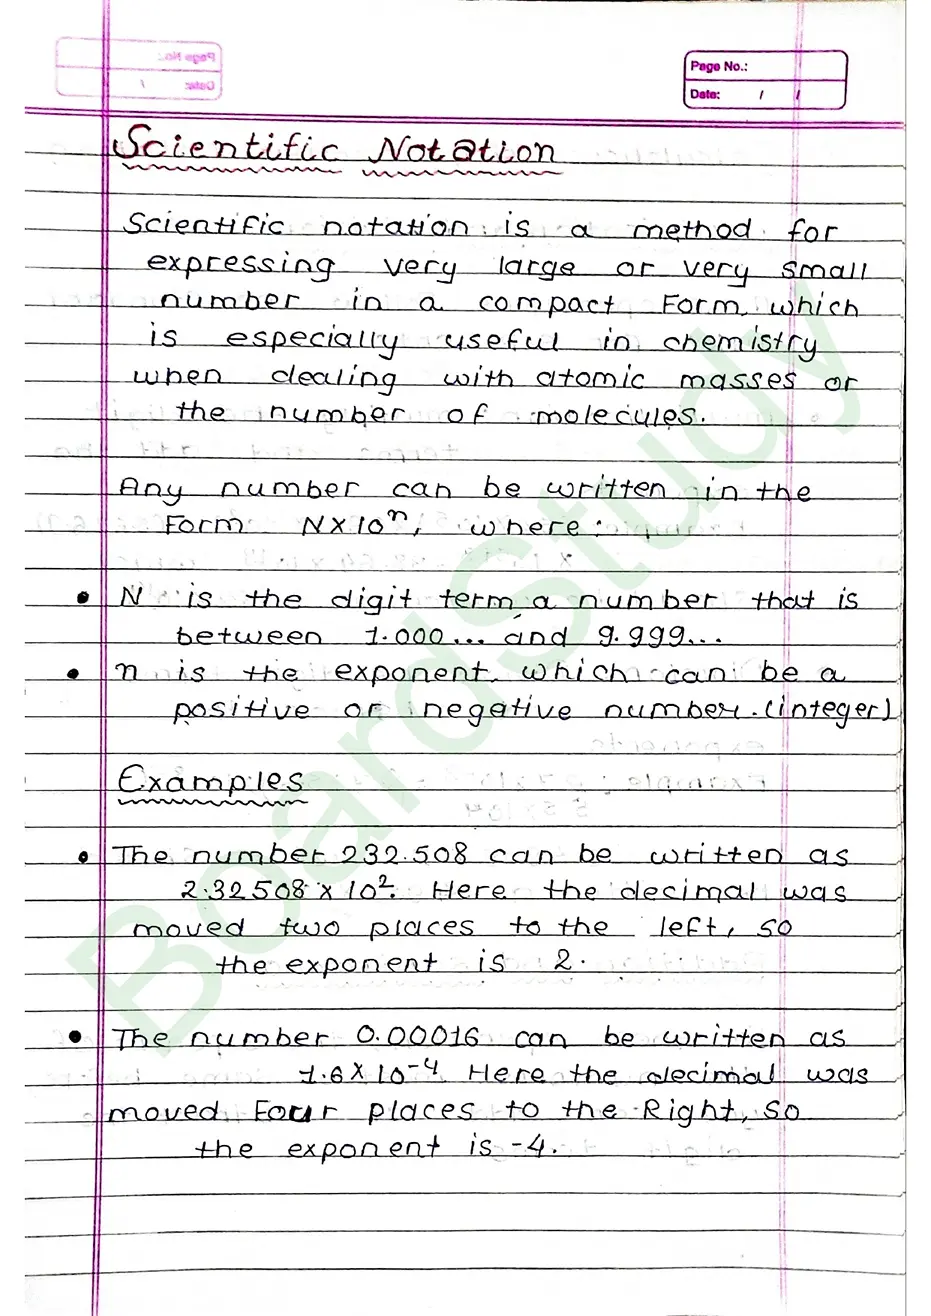 Page No.:
Date: / /
Scientific Notation
Scientific notation is a method for
expressing very large or very small
number in a compact Form, which
is especially useful in chemistry
when dealing with atomic masses or
the number of molecules.
Any number can be written in the
Form N×10ⁿ, where:
• N is the digit term, a number that is
between 1.000... and 9.999...
• n is the exponent, which can be a
positive or negative number. (integer)
Examples
• The number 232.508 can be written as
2.32508 × 10². Here the decimal was
moved two places to the left, so
the exponent is 2.
• The number 0.00016 can be written as
1.6 × 10⁻⁴. Here the decimal was
moved Four places to the Right, so
the exponent is -4.
BoardStudy